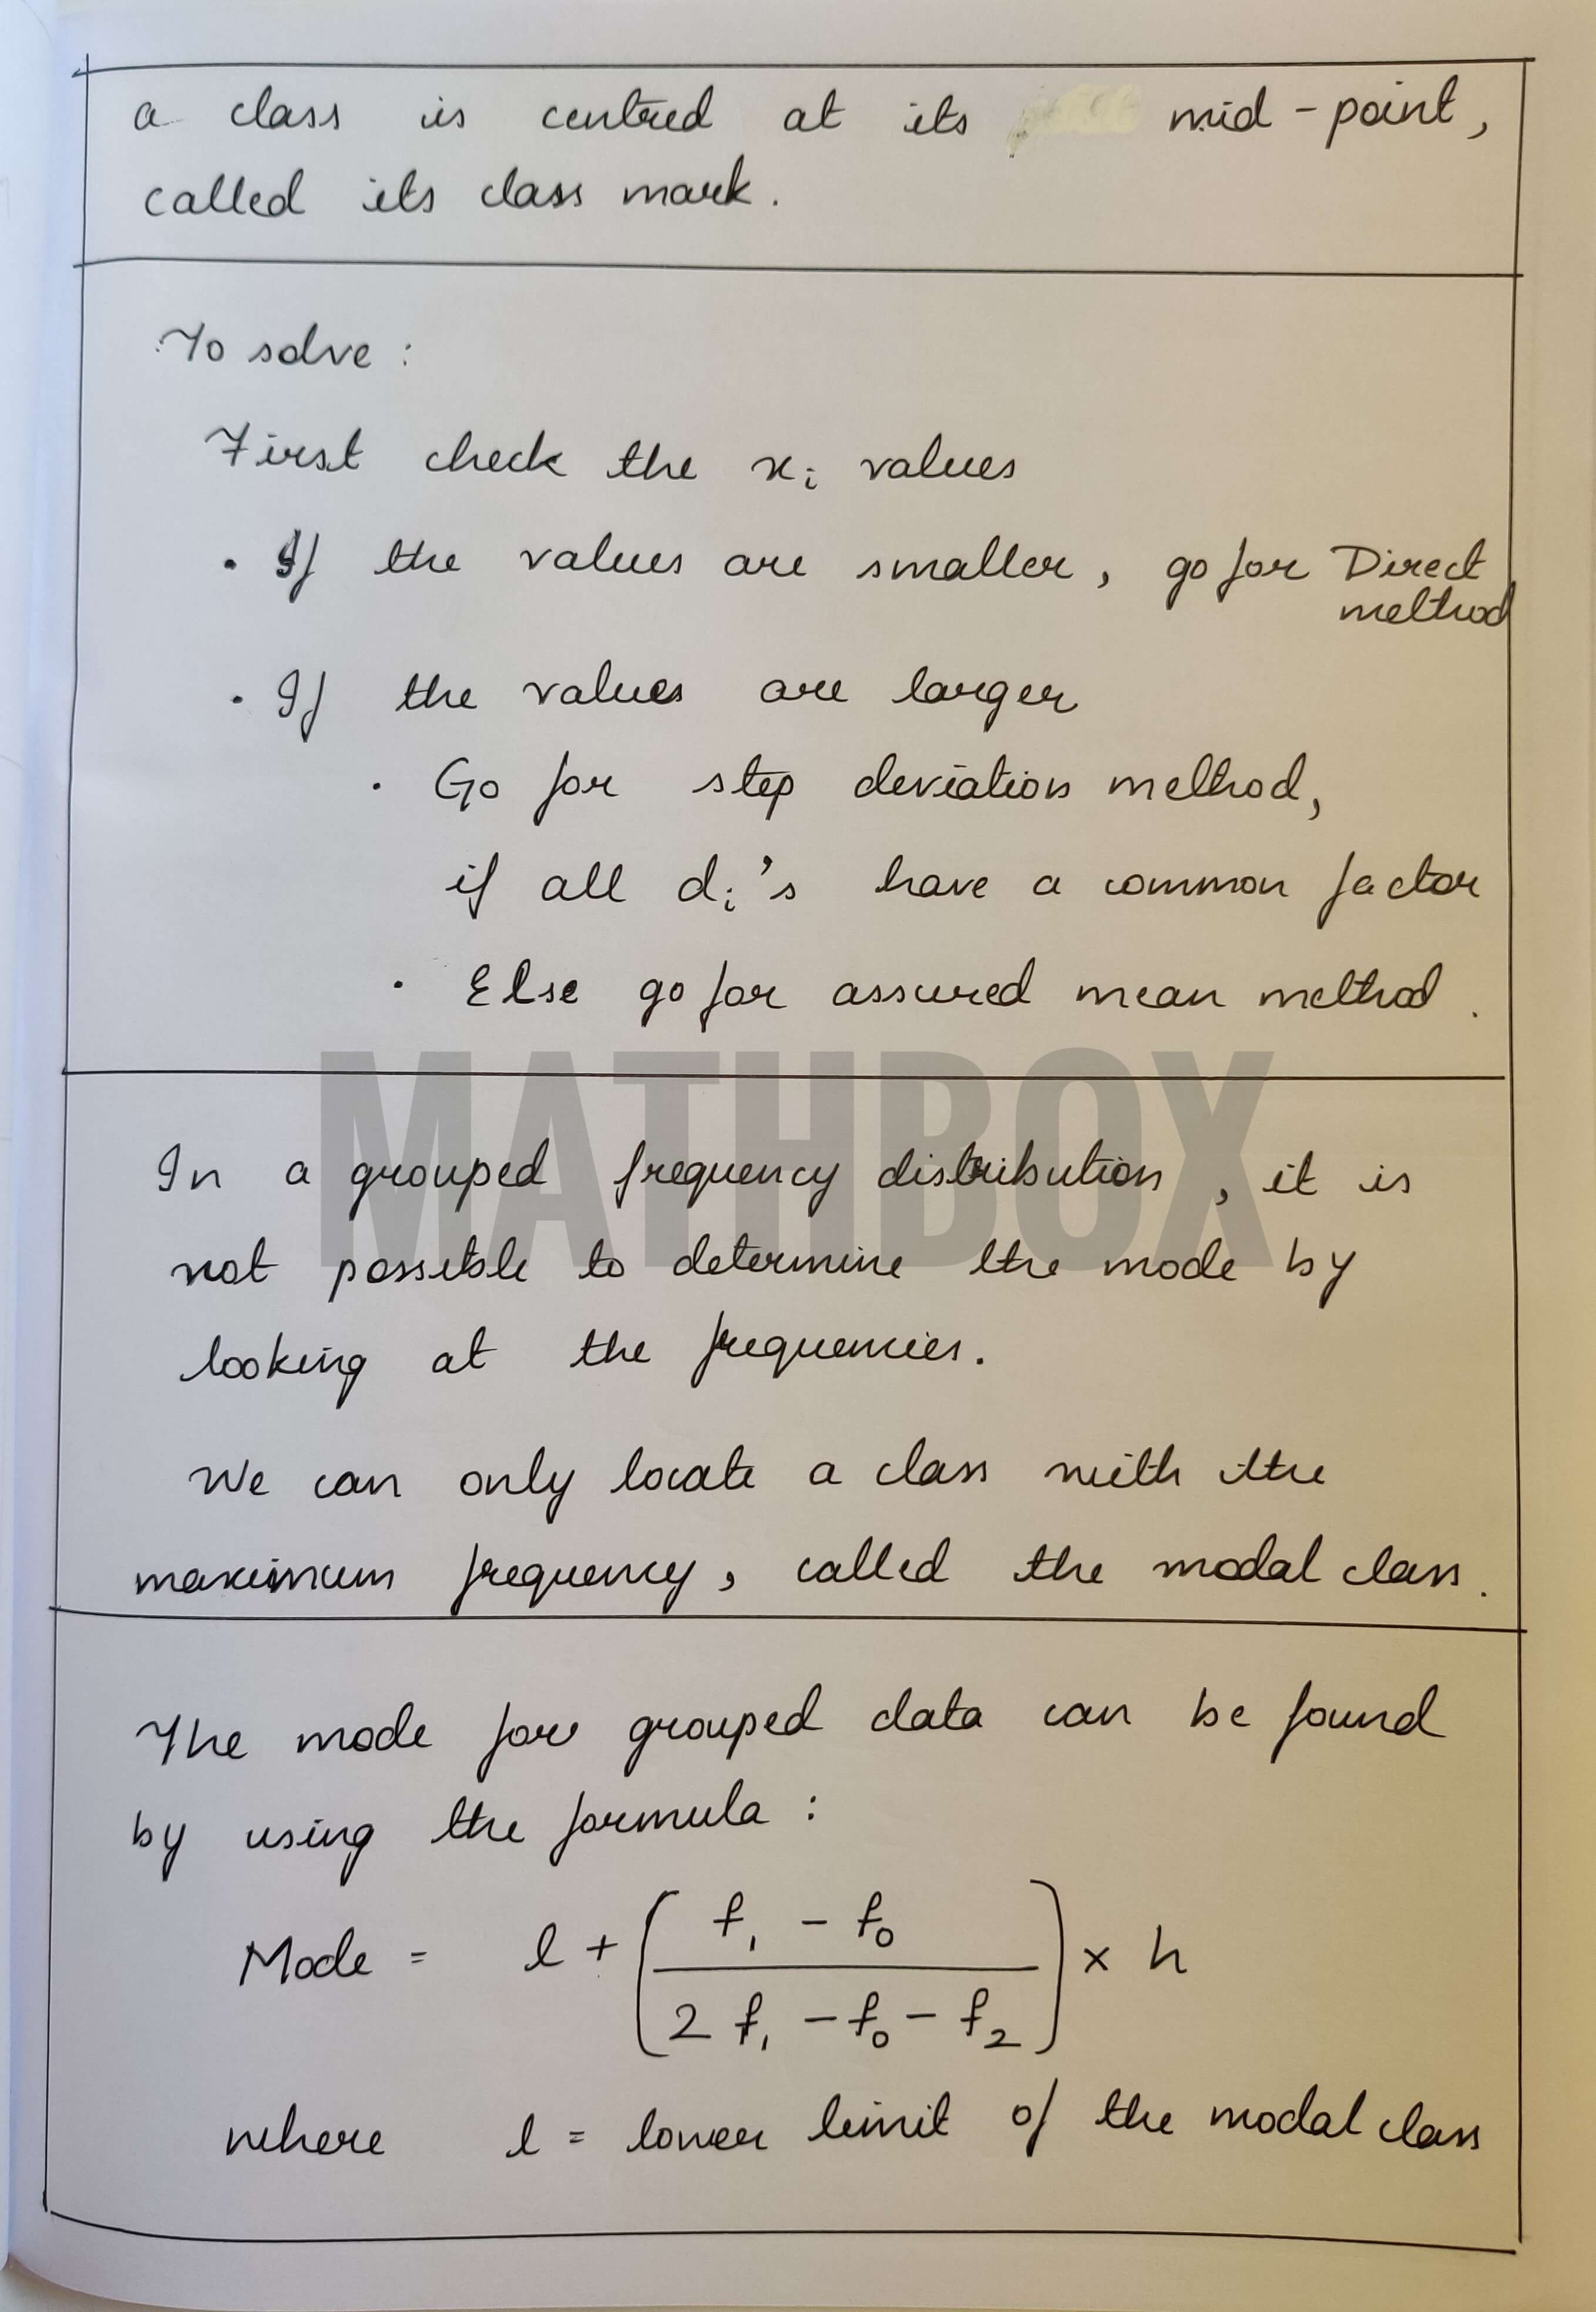 a class is centred at its mid-point,
called its class mark.
To solve:
First check the xᵢ values
• If the values are smaller, go for Direct
method
• If the values are larger
• Go for step deviation method,
if all dᵢ's have a common factor
• Else go for assured mean method.
MATHBOX
In a grouped frequency distribution, it is
not possible to determine the mode by
looking at the frequencies.
We can only locate a class with the
maximum frequency, called the modal class.
The mode for grouped data can be found
by using the formula:
Mode = l + (f₁ - f₀ / 2f₁ - f₀ - f₂) × h
where l = lower limit of the modal class